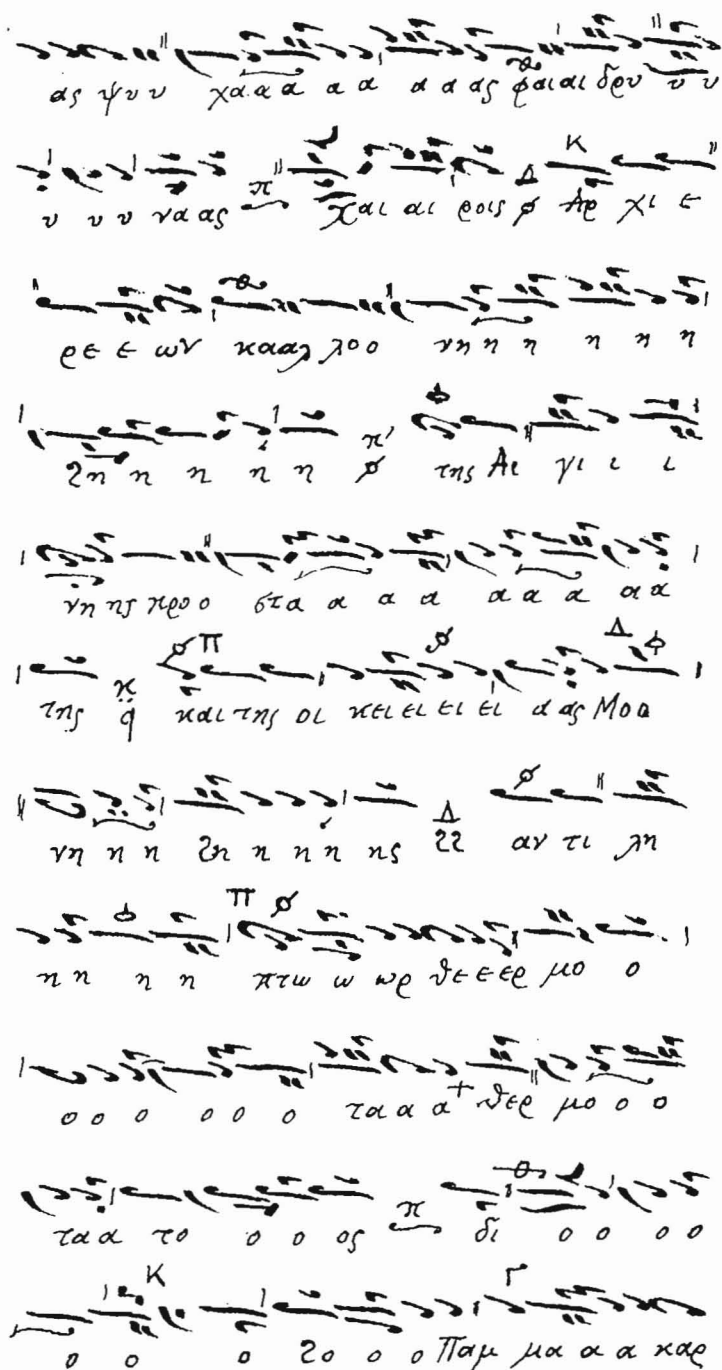 ας ψυ υ χα α α α α α α ας φαι αι δρυ υ υ
υ υ υ να ας χαι αι ροις Αρ χι ε
ρε ε ων κα αλ λο ο νη η η η η η
2η η η η η η της Αι γι ι ι
νη ης προ ο στα α α α α α α α α
της και της οι κει ει ει ει α ας Μο ο
νη η η 2η η η η ης αν τι λη
η η η η πτω ω ωρ θε ε ερ μο ο
ο ο ο ο ο ο τα α α θερ μο ο ο
τα α το ο ο ος δι ο ο ο ο
ο ο ο 2ο ο ο Παμ μα α α καρ